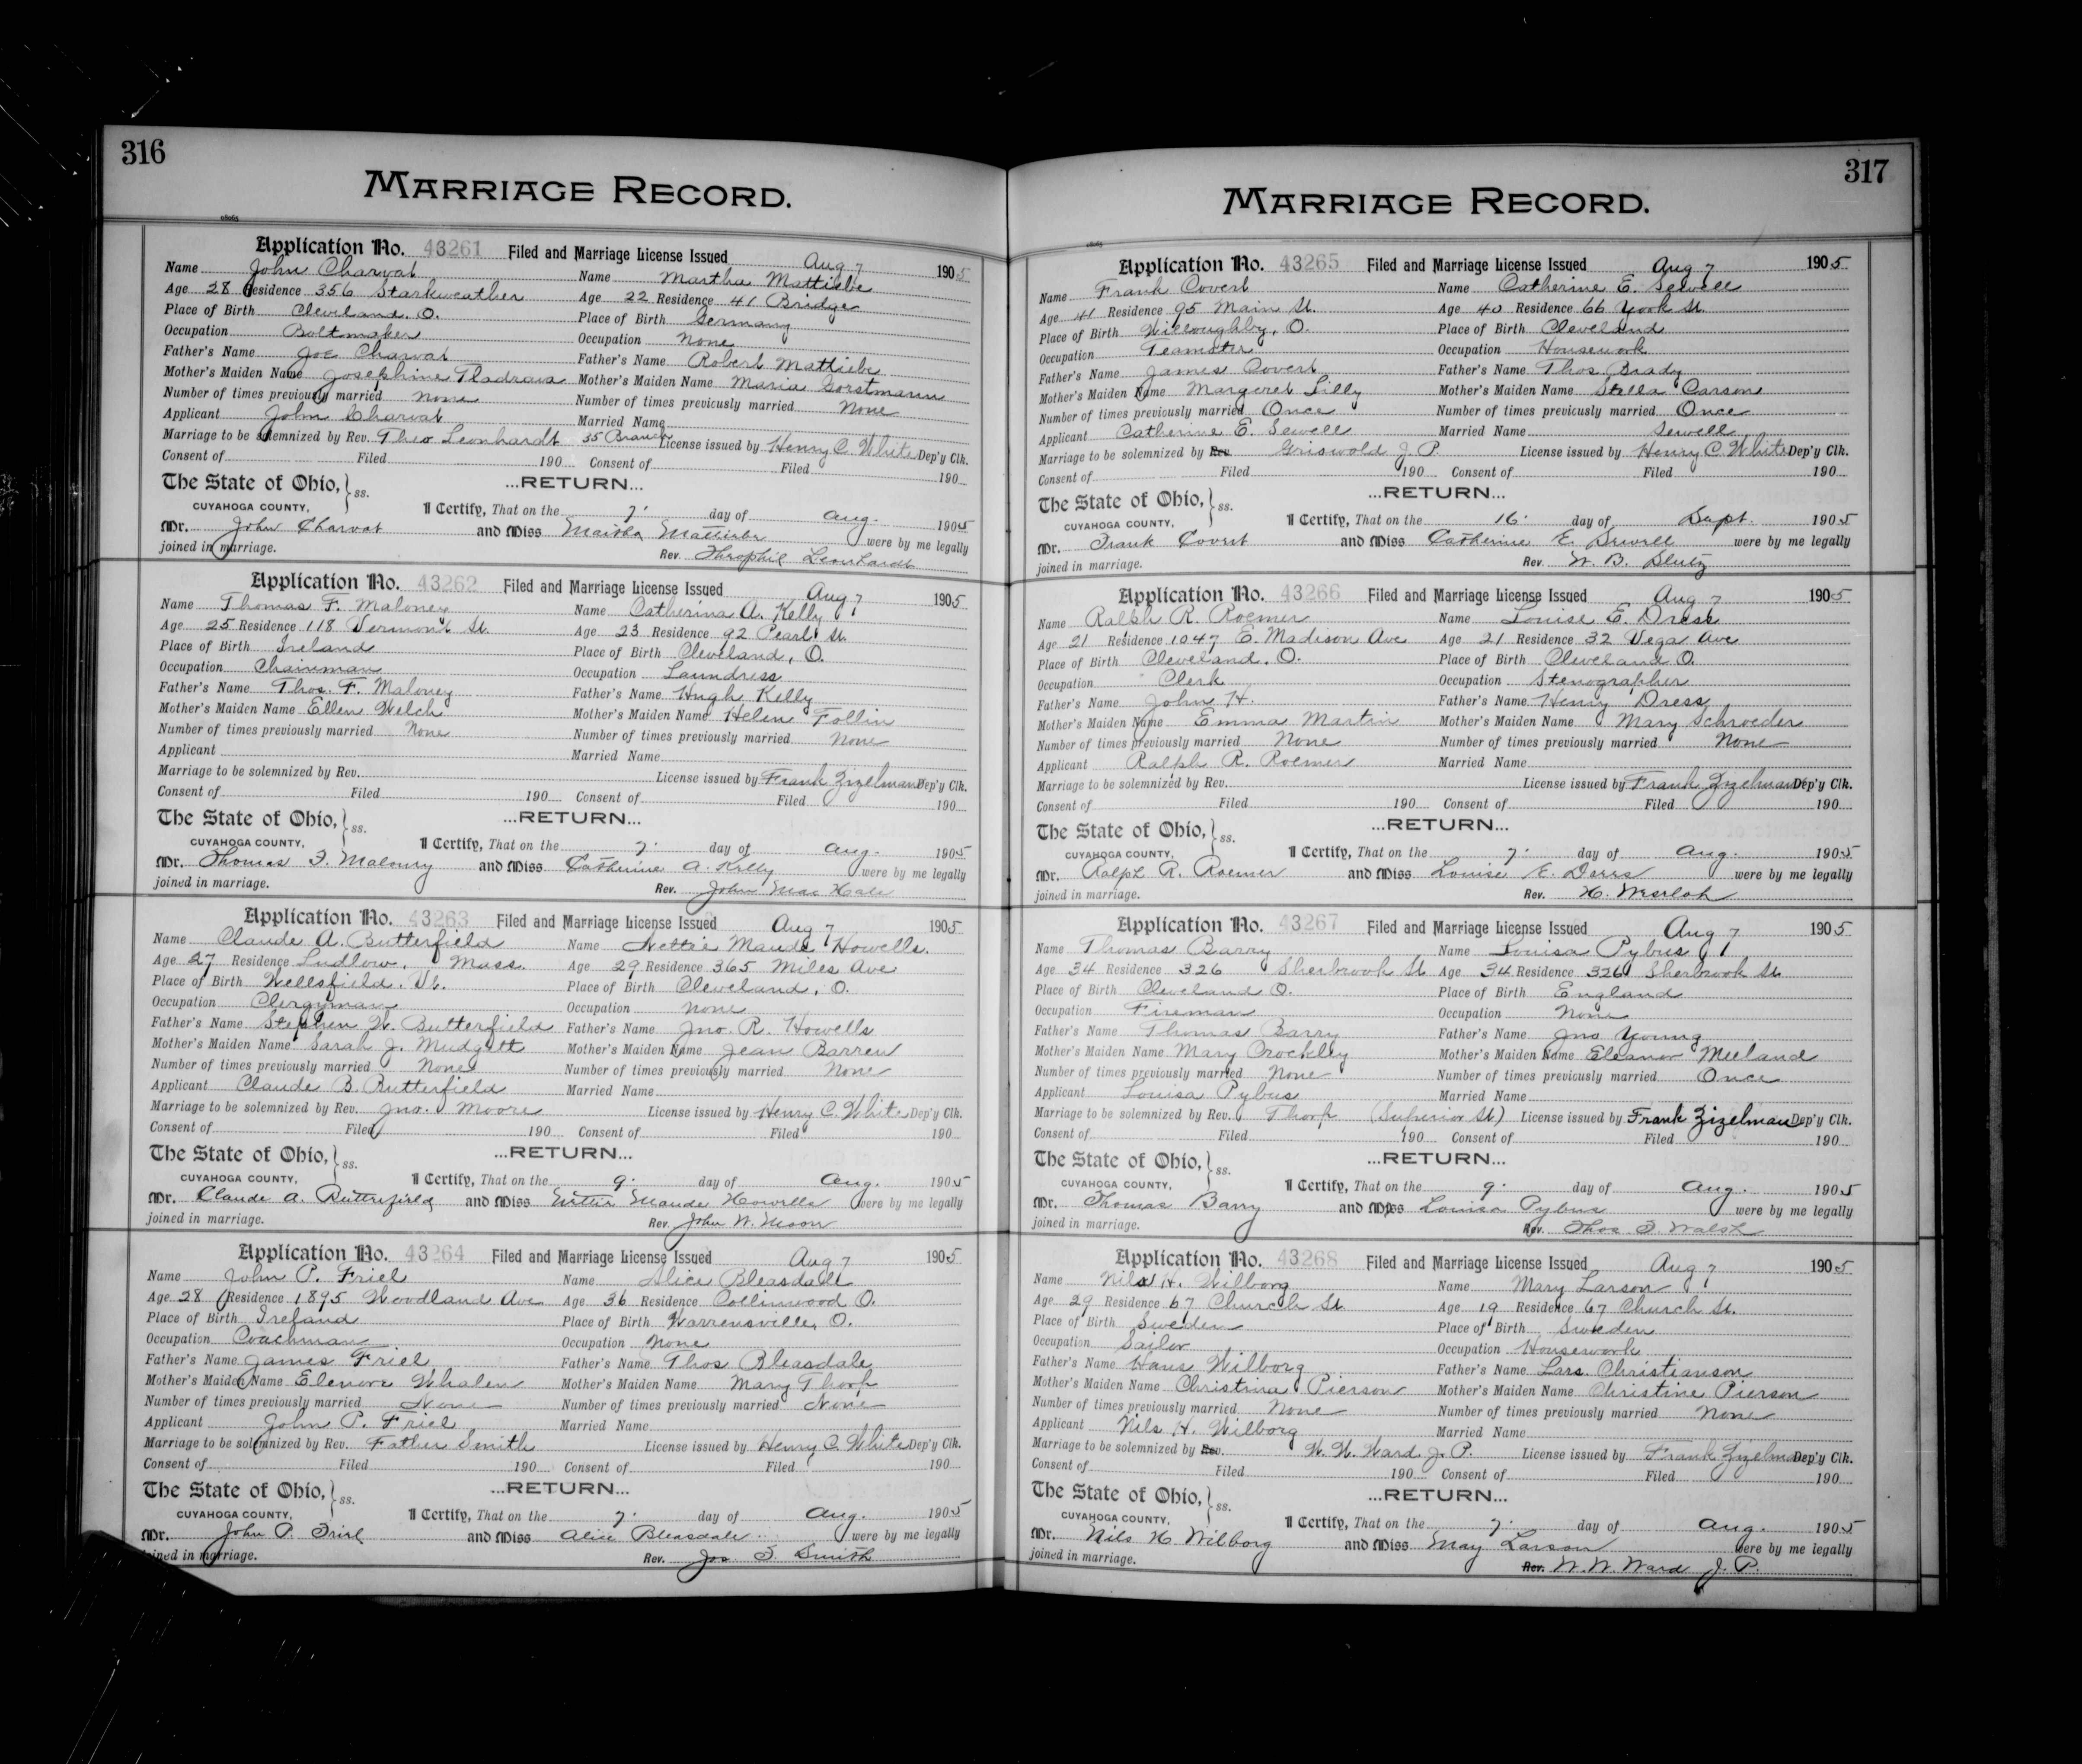 316
MARRIAGE RECORD.
Application No. 43261 Filed and Marriage License Issued Aug 7 1905
Name John Charvat Name Martha Mattiebe
Age 28 Residence 356 Starkweather Age 22 Residence 41 Bridge
Place of Birth Cleveland, O. Place of Birth Germany
Occupation Boltmaker Occupation None
Father's Name Joe Charvat Father's Name Robert Mattiebe
Mother's Maiden Name Josephine Mother's Maiden Name Maria Gorstmann
Number of times previously married None Number of times previously married None
Applicant John Charvat Married Name
Marriage to be solemnized by Rev. Theo Leonhardt 55 Branch License issued by Henry C. White Dep'y Clk.
Consent of Filed 190 Consent of Filed 190
The State of Ohio, CUYAHOGA COUNTY, } ss. ...RETURN...
I Certify, That on the 7. day of Aug. 1905
Mr. John Charvat and Miss Martha Mattiebe were by me legally
joined in marriage. Rev. Theophil Leonhardt
Application No. 43262 Filed and Marriage License Issued Aug 7 1905
Name Thomas F. Maloney Name Catherina A. Kelly
Age 25 Residence 118 Vermont St. Age 23 Residence 92 Pearl St.
Place of Birth Ireland Place of Birth Cleveland, O.
Occupation Chainman Occupation Laundress
Father's Name Thos. F. Maloney Father's Name Hugh Kelly
Mother's Maiden Name Ellen Welch Mother's Maiden Name Helen Follin
Number of times previously married None Number of times previously married None
Applicant Married Name
Marriage to be solemnized by Rev. License issued by Frank Zizelman Dep'y Clk.
Consent of Filed 190 Consent of Filed 190
The State of Ohio, CUYAHOGA COUNTY, } ss. ...RETURN...
I Certify, That on the 7. day of Aug. 1905
Mr. Thomas F. Maloney and Miss Catherine A. Kelly were by me legally
joined in marriage. Rev. John Mac Hale
Application No. 43263 Filed and Marriage License Issued Aug 7 1905
Name Claude A. Butterfield Name Nettie Maude Howells.
Age 27 Residence Ludlow, Mass. Age 29 Residence 365 Miles Ave
Place of Birth Wellsfield, Vt. Place of Birth Cleveland, O.
Occupation Clergyman Occupation None
Father's Name Stephen W. Butterfield Father's Name Jno. R. Howells
Mother's Maiden Name Sarah J. Mudgett Mother's Maiden Name Jean Barren
Number of times previously married None Number of times previously married None
Applicant Claude B. Butterfield Married Name
Marriage to be solemnized by Rev. Jno. Moore License issued by Henry C. White Dep'y Clk.
Consent of Filed 190 Consent of Filed 190
The State of Ohio, CUYAHOGA COUNTY, } ss. ...RETURN...
I Certify, That on the 9. day of Aug. 1905
Mr. Claude A. Butterfield and Miss Nettie Maude Howells were by me legally
joined in marriage. Rev. John W. Moore
Application No. 43264 Filed and Marriage License Issued Aug 7 1905
Name John P. Friel Name Alice Bleasdale
Age 28 Residence 1895 Woodland Ave Age 36 Residence Collinwood O.
Place of Birth Ireland Place of Birth Warrensville, O.
Occupation Coachman Occupation None
Father's Name James Friel Father's Name Thos Bleasdale
Mother's Maiden Name Elenore Whalen Mother's Maiden Name Mary Thorp
Number of times previously married None Number of times previously married None
Applicant John P. Friel Married Name
Marriage to be solemnized by Rev. Father Smith License issued by Henry C. White Dep'y Clk.
Consent of Filed 190 Consent of Filed 190
The State of Ohio, CUYAHOGA COUNTY, } ss. ...RETURN...
I Certify, That on the 7. day of Aug. 1905
Mr. John P. Friel and Miss Alice Bleasdale were by me legally
joined in marriage. Rev. Jos F. Smith
317
MARRIAGE RECORD.
Application No. 43265 Filed and Marriage License Issued Aug 7 1905
Name Frank Covert Name Catherine E. Sewell
Age 41 Residence 95 Main St. Age 40 Residence 66 York St.
Place of Birth Willoughby, O. Place of Birth Cleveland
Occupation Teamster Occupation Housework
Father's Name James Covert Father's Name Thos Brady
Mother's Maiden Name Margaret Lilly Mother's Maiden Name Stella Carson
Number of times previously married Once Number of times previously married Once
Applicant Catherine E. Sewell Married Name Sewell
Marriage to be solemnized by Rev. Griswold J. P. License issued by Henry C. White Dep'y Clk.
Consent of Filed 190 Consent of Filed 190
The State of Ohio, CUYAHOGA COUNTY, } ss. ...RETURN...
I Certify, That on the 16. day of Sept. 1905
Mr. Frank Covert and Miss Catherine E. Sewell were by me legally
joined in marriage. Rev. W. B.
Application No. 43266 Filed and Marriage License Issued Aug 7 1905
Name Ralph R. Roemer Name Louise E. Dress
Age 21 Residence 1047 E. Madison Ave Age 21 Residence 32 Vega Ave
Place of Birth Cleveland, O. Place of Birth Cleveland O.
Occupation Clerk Occupation Stenographer
Father's Name John H. Father's Name Henry Dress
Mother's Maiden Name Emma Martin Mother's Maiden Name Mary Schroeder
Number of times previously married None Number of times previously married None
Applicant Ralph R. Roemer Married Name
Marriage to be solemnized by Rev. License issued by Frank Zizelman Dep'y Clk.
Consent of Filed 190 Consent of Filed 190
The State of Ohio, CUYAHOGA COUNTY, } ss. ...RETURN...
I Certify, That on the 7. day of Aug. 1905
Mr. Ralph R. Roemer and Miss Louise E. Derrs were by me legally
joined in marriage. Rev. H. Weseloh
Application No. 43267 Filed and Marriage License Issued Aug 7 1905
Name Thomas Barry Name Louisa Pybus
Age 34 Residence 326 Sherbrook St Age 34 Residence 326 Sherbrook St.
Place of Birth Cleveland O. Place of Birth England
Occupation Fireman Occupation None
Father's Name Thomas Barry Father's Name Jno Young
Mother's Maiden Name Mary Crockley Mother's Maiden Name Eleanor Meeland
Number of times previously married None Number of times previously married Once
Applicant Louisa Pybus Married Name
Marriage to be solemnized by Rev. Thorp (Superior St) License issued by Frank Zizelman Dep'y Clk.
Consent of Filed 190 Consent of Filed 190
The State of Ohio, CUYAHOGA COUNTY, } ss. ...RETURN...
I Certify, That on the 9. day of Aug. 1905
Mr. Thomas Barry and Miss Louisa Pybus were by me legally
joined in marriage. Rev. Thos. F. Walsh
Application No. 43268 Filed and Marriage License Issued Aug 7 1905
Name Nils H. Wilborg Name Mary Larson
Age 29 Residence 67 Church St. Age 19 Residence 67 Church St.
Place of Birth Sweden Place of Birth Sweden
Occupation Sailor Occupation Housework
Father's Name Hans Wilborg Father's Name Lars Christianson
Mother's Maiden Name Christina Pierson Mother's Maiden Name Christine Pierson
Number of times previously married None Number of times previously married None
Applicant Nils H. Wilborg Married Name
Marriage to be solemnized by Rev. W. W. Ward J. P. License issued by Frank Zizelman Dep'y Clk.
Consent of Filed 190 Consent of Filed 190
The State of Ohio, CUYAHOGA COUNTY, } ss. ...RETURN...
I Certify, That on the 7. day of Aug. 1905
Mr. Nils H Wilborg and Miss May Larson were by me legally
joined in marriage. Rev. W. W. Ward J. P.